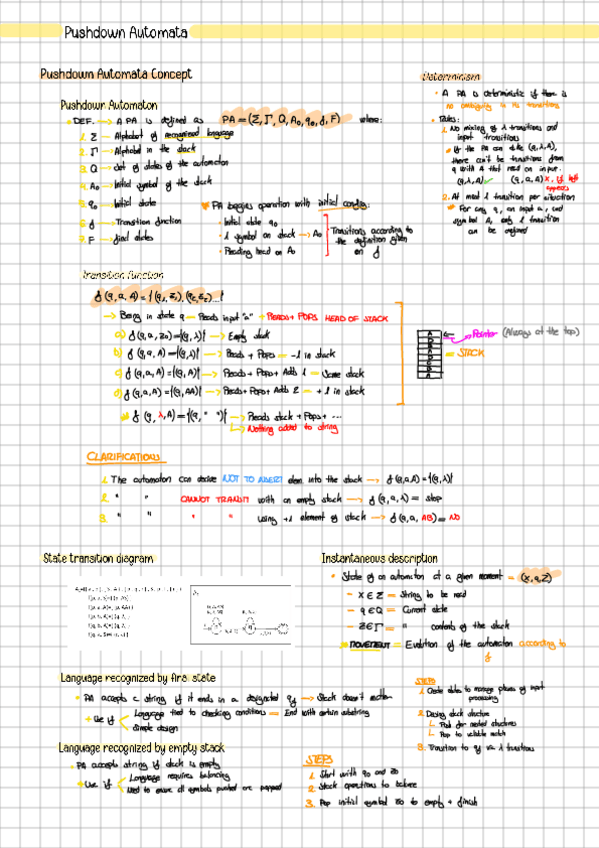 Pushdown Automata
Pushdown Automata Concept
Pushdown Automaton
DEF. → A PA is defined as PA = (Σ, Γ, Q, A₀, q₀, f, F) where:
1. Σ → Alphabet of recognized language
2. Γ → Alphabet in the stack
3. Q → Set of states of the automaton
4. A₀ → Initial symbol of the stack
5. q₀ → Initial state
6. f → Transition function
7. F → final states
PA begins operation with initial config:
Initial state q₀
1 symbol on stack → A₀
Reading head on A₀
Transitions according to
the definition given
on f
Determinism
A PA is deterministic if there is
no ambiguity in its transitions
Rules:
1. No mixing of λ transitions and
input transitions
If the PA can take (q, λ, A),
there can't be transitions from
q with A that read an input.
(q, λ, A) ✓ (q, a, A) X, if left
appears
2. At most 1 transition per situation
For any q, an input a, and
symbol A, only 1 transition
can be defined
Transition function
f(q, a, A) = {(q₁, Z₁), (q₂, Z₂)...}
→ Being in state q → Reads input "a" → READS + POPS HEAD OF STACK
a) f(q, a, Z₀) = {(q, λ)} → Empty stack
b) f(q, a, A) = {(q, λ)} → Reads + Pops → -1 in stack
c) f(q, a, A) = {(q, A)} → Reads + Pops + Adds 1 = Same stack
d) f(q, a, A) = {(q, AA)} → Reads + Pops + Adds 2 = +1 in stack
f(q, λ, A) = {(q, " ")} → Reads stack + Pops + ...
→ Nothing added to string
Pointer (Always at the top)
STACK
CLARIFICATIONS
1. The automaton can decide NOT TO INSERT elem. into the stack → f(q, a, A) = {(q, λ)}
2. " " CANNOT TRANSIT with an empty stack → f(q, a, λ) = stop
3. " " " " using +1 element of stack → f(q, a, AB) = NO
State transition diagram
Instantaneous description
State of an automaton at a given moment = (x, q, Z)
- x ∈ Σ = String to be read
- q ∈ Q = Current state
- Z ∈ Γ = " contents of the stack
MOVEMENT = Evolution of the automaton according to
f
Language recognized by final state
PA accepts a string if it ends in a designated qf → Stack doesn't matter
Use if
Language tied to checking conditions = End with certain substring
Simple design
STEPS
1. Create states to manage phases of input
processing
2. Design stack structure
Push for nested structures
Pop to validate match
3. Transition to qf via λ transitions
Language recognized by empty stack
PA accepts string if stack is empty
Use if
Language requires balancing
Need to ensure all symbols pushed are popped
STEPS
1. Start with q₀ and Z₀
2. Stack operations to balance
3. Pop initial symbol Z₀ to empty + finish